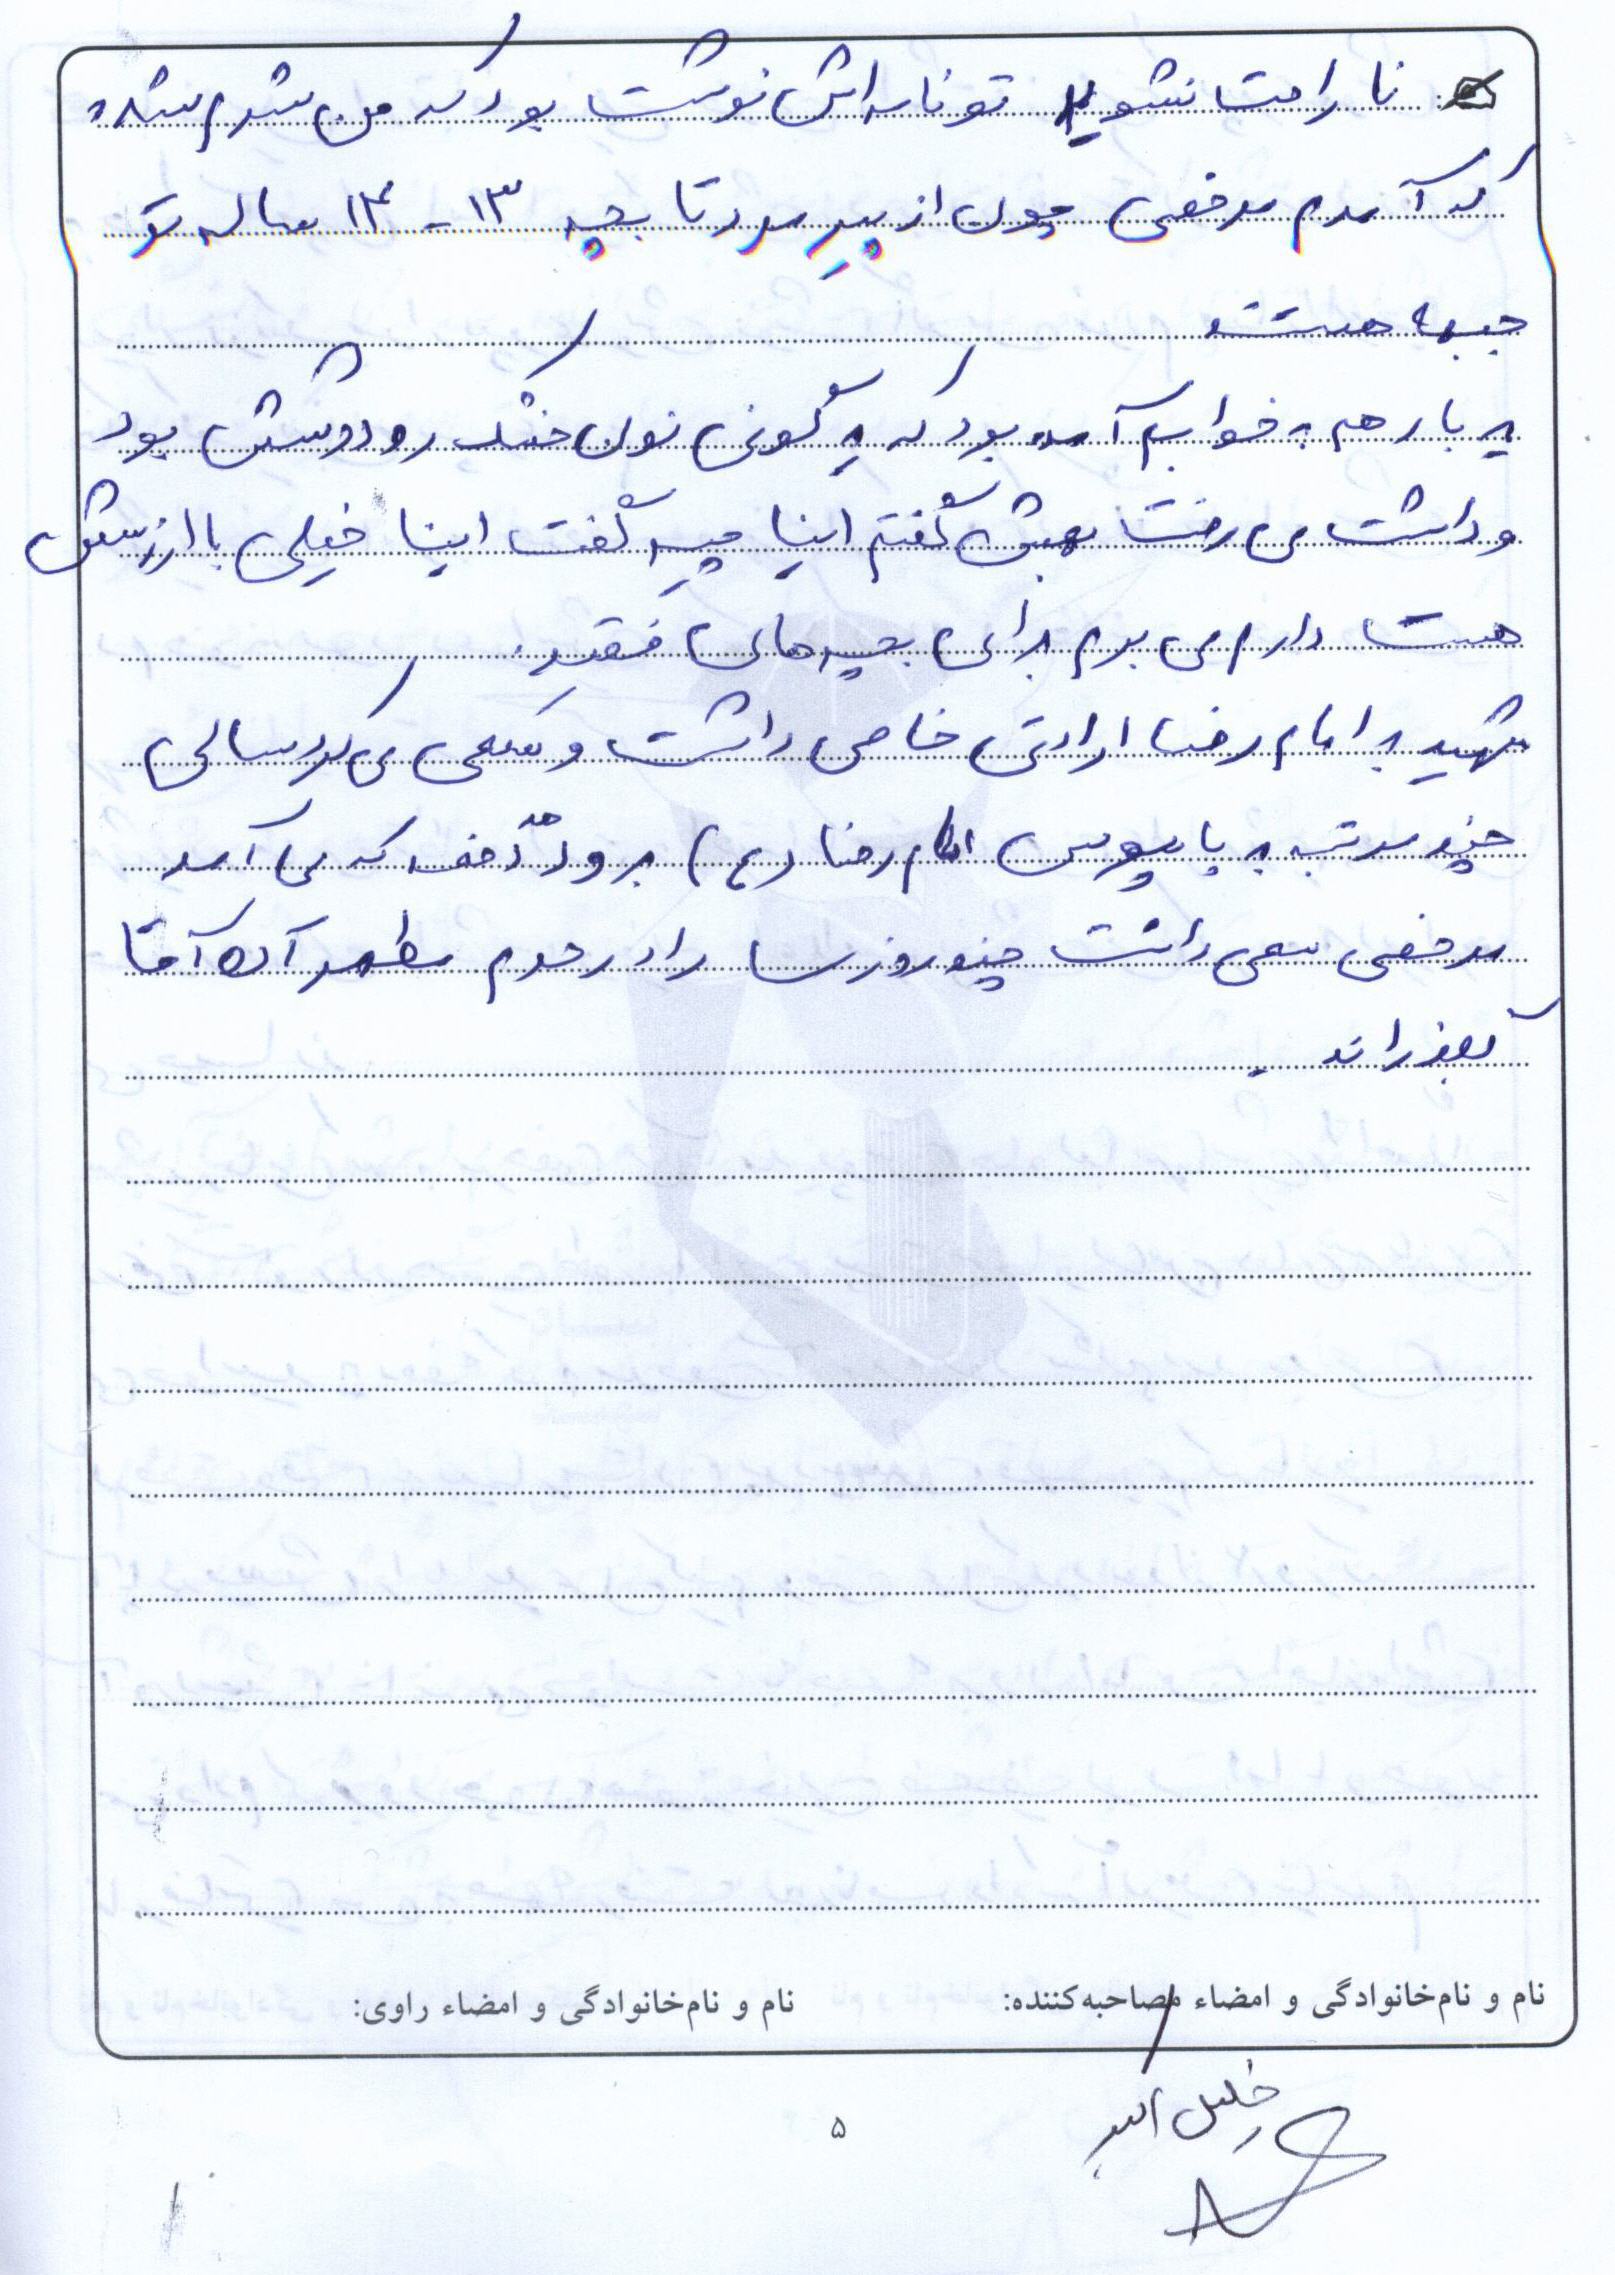 ناراحت نشوید تو نامه اش نوشته بود که من شرم شده
که آمدم مرخصی چون از پیرمرد تا بچه ۱۳ - ۱۴ ساله تو
جبهه هستند
یه بار هم به خوابم آمده بود که یه گونی نون خشک رو دوشش بود
و داشت می رفت بهش گفتم اینا چیه گفت اینا خیلی با ارزش
هست دارم می برم برای بچه های فقیر.
شهید به امام رضا ارادتی خاصی داشت و سعی می کرد سالی
چند مرتبه به پابوس امام رضا (ع) برود هر دفعه که می آمد
مرخصی سعی داشت چند روز را در حرم مطهر آن آقا
بگذراند.
نام و نام‌خانوادگی و امضاء مصاحبه‌کننده: نام و نام‌خانوادگی و امضاء راوی:
خلیل
۵